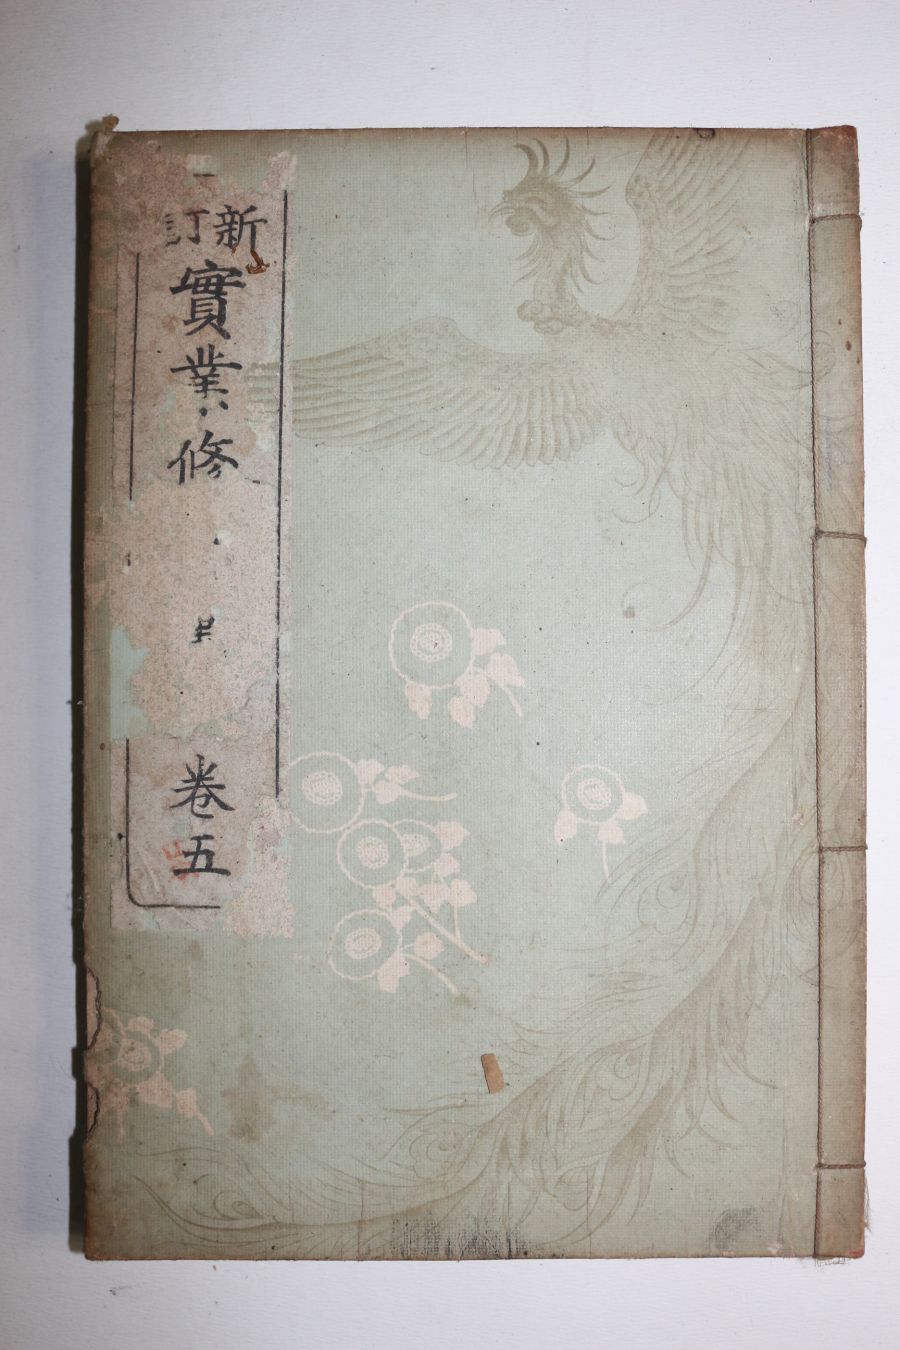 新訂
實業修
卷五